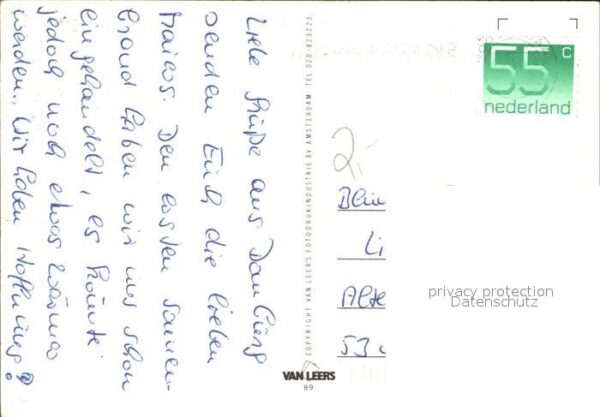 Liebe Grüße aus Domburg
senden Euch die lieben
Den ersten Sonnen-
brand haben wir uns schon
eingehandelt, es könnte
jedoch noch etwas wärmer
werden. Wir haben Hoffnung!
COPYRIGHT VAN LEERS FOTODRUKINDUSTRIE BV AMSTERDAM TEL. 020-
VAN LEERS
89
55 c
nederland
2,-
Alte
53
privacy protection
Datenschutz